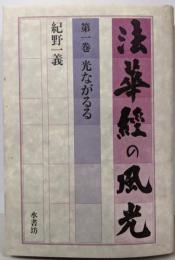 法華經の風光
第一巻 光ながるる
紀野一義
水書坊